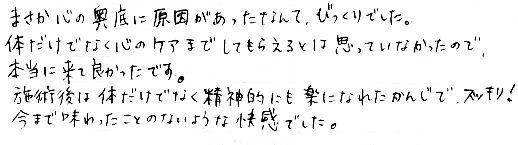 まさか心の奥底に原因があったなんて、びっくりでした。
体だけでなく心のケアまでしてもらえるとは思っていなかったので、
本当に来て良かったです。
施術後は体だけでなく精神的にも楽になれたかんじで、スッキリ!
今まで味わったことのないような快感でした。